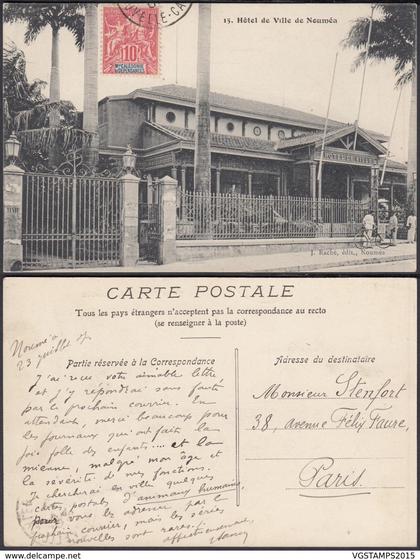 15. Hôtel de Ville de Nouméa
10
Nlle CALÉDONIE
et DÉPENDANCES
HOTEL DE VILLE
J. Raché, édit., Nouméa
CARTE POSTALE
Tous les pays étrangers n'acceptent pas la correspondance au recto
(se renseigner à la poste)
Nouméa
23 juillet 07
Partie réservée à la Correspondance
Adresse du destinataire
J'ai reçu votre aimable lettre
et j'y répondrai sans faute
par le prochain courrier. En
attendant, merci beaucoup pour
les journaux qui ont fait la
joie folle des enfants... et la
mienne, malgré mon âge et
la sévérité de mes fonctions.
Je chercherai en ville quelques
cartes postales d'animaux humains,
pour vous les adresser par le
prochain courrier, mais les séries
nouvelles sont rares.
affectueusement
Monsieur Stenfort
38, avenue Félix Faure,
Paris
© www.delcampe.net
VFSTAMPS2015